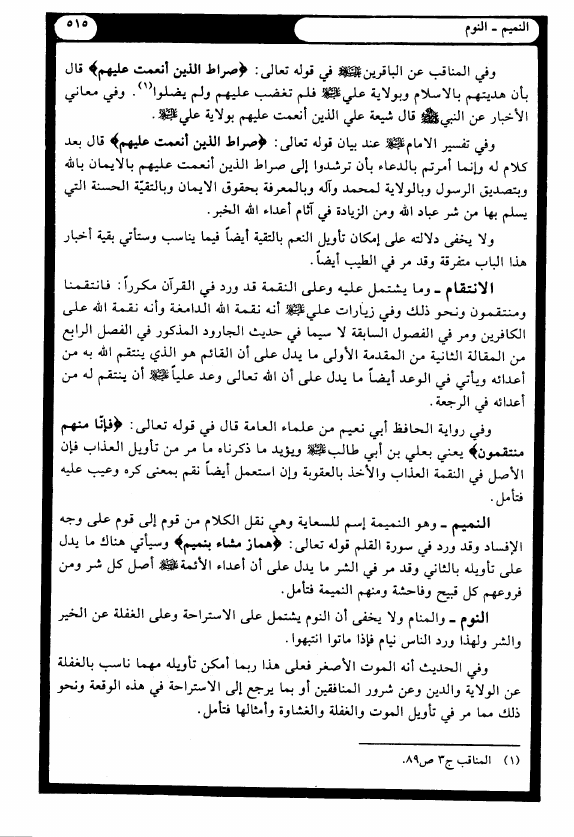 النميم ـ النوم
٥١٥
وفي المناقب عن الباقرين ﷺ في قوله تعالى: ﴿صراط الذين أنعمت عليهم﴾ قال
بأن هديتهم بالاسلام وبولاية علي ﷺ فلم تغضب عليهم ولم يضلوا(١). وفي معاني
الأخبار عن النبي ﷺ قال شيعة علي الذين أنعمت عليهم بولاية علي ﷺ.
وفي تفسير الامام ﷺ عند بيان قوله تعالى: ﴿صراط الذين أنعمت عليهم﴾ قال بعد
كلام له وإنما أمرتم بالدعاء بأن ترشدوا إلى صراط الذين أنعمت عليهم بالايمان بالله
وبتصديق الرسول وبالولاية لمحمد وآله وبالمعرفة بحقوق الايمان وبالتقيّة الحسنة التي
يسلم بها من شر عباد الله ومن الزيادة في آثام أعداء الله الخبر.
ولا يخفى دلالته على إمكان تأويل النعم بالتقية أيضاً فيما يناسب وستأتي بقية أخبار
هذا الباب متفرقة وقد مر في الطيب أيضاً.
الانتقام ـ وما يشتمل عليه وعلى النقمة قد ورد في القرآن مكرراً: فانتقمنا
ومنتقمون ونحو ذلك وفي زيارات علي ﷺ أنه نقمة الله الدامغة وأنه نقمة الله على
الكافرين ومر في الفصول السابقة لا سيما في حديث الجارود المذكور في الفصل الرابع
من المقالة الثانية من المقدمة الأولى ما يدل على أن القائم هو الذي ينتقم الله به من
أعدائه ويأتي في الوعد أيضاً ما يدل على أن الله تعالى وعد علياً ﷺ أن ينتقم له من
أعدائه في الرجعة.
وفي رواية الحافظ أبي نعيم من علماء العامة قال في قوله تعالى: ﴿فإنّا منهم
منتقمون﴾ يعني بعلي بن أبي طالب ﷺ ويؤيد ما ذكرناه ما مر من تأويل العذاب فإن
الأصل في النقمة العذاب والأخذ بالعقوبة وإن استعمل أيضاً نقم بمعنى كره وعيب عليه
فتأمل.
النميم ـ وهو النميمة إسم للسعاية وهي نقل الكلام من قوم إلى قوم على وجه
الإفساد وقد ورد في سورة القلم قوله تعالى: ﴿هماز مشاء بنميم﴾ وسيأتي هناك ما يدل
على تأويله بالثاني وقد مر في الشر ما يدل على أن أعداء الأئمة ﷺ أصل كل شر ومن
فروعهم كل قبيح وفاحشة ومنهم النميمة فتأمل.
النوم ـ والمنام ولا يخفى أن النوم يشتمل على الاستراحة وعلى الغفلة عن الخير
والشر ولهذا ورد الناس نيام فإذا ماتوا انتبهوا.
وفي الحديث أنه الموت الأصغر فعلى هذا ربما أمكن تأويله مهما ناسب بالغفلة
عن الولاية والدين وعن شرور المنافقين أو بما يرجع إلى الاستراحة في هذه الوقعة ونحو
ذلك مما مر في تأويل الموت والغفلة والغشاوة وأمثالها فتأمل.
(١) المناقب ج٣ ص٨٩.